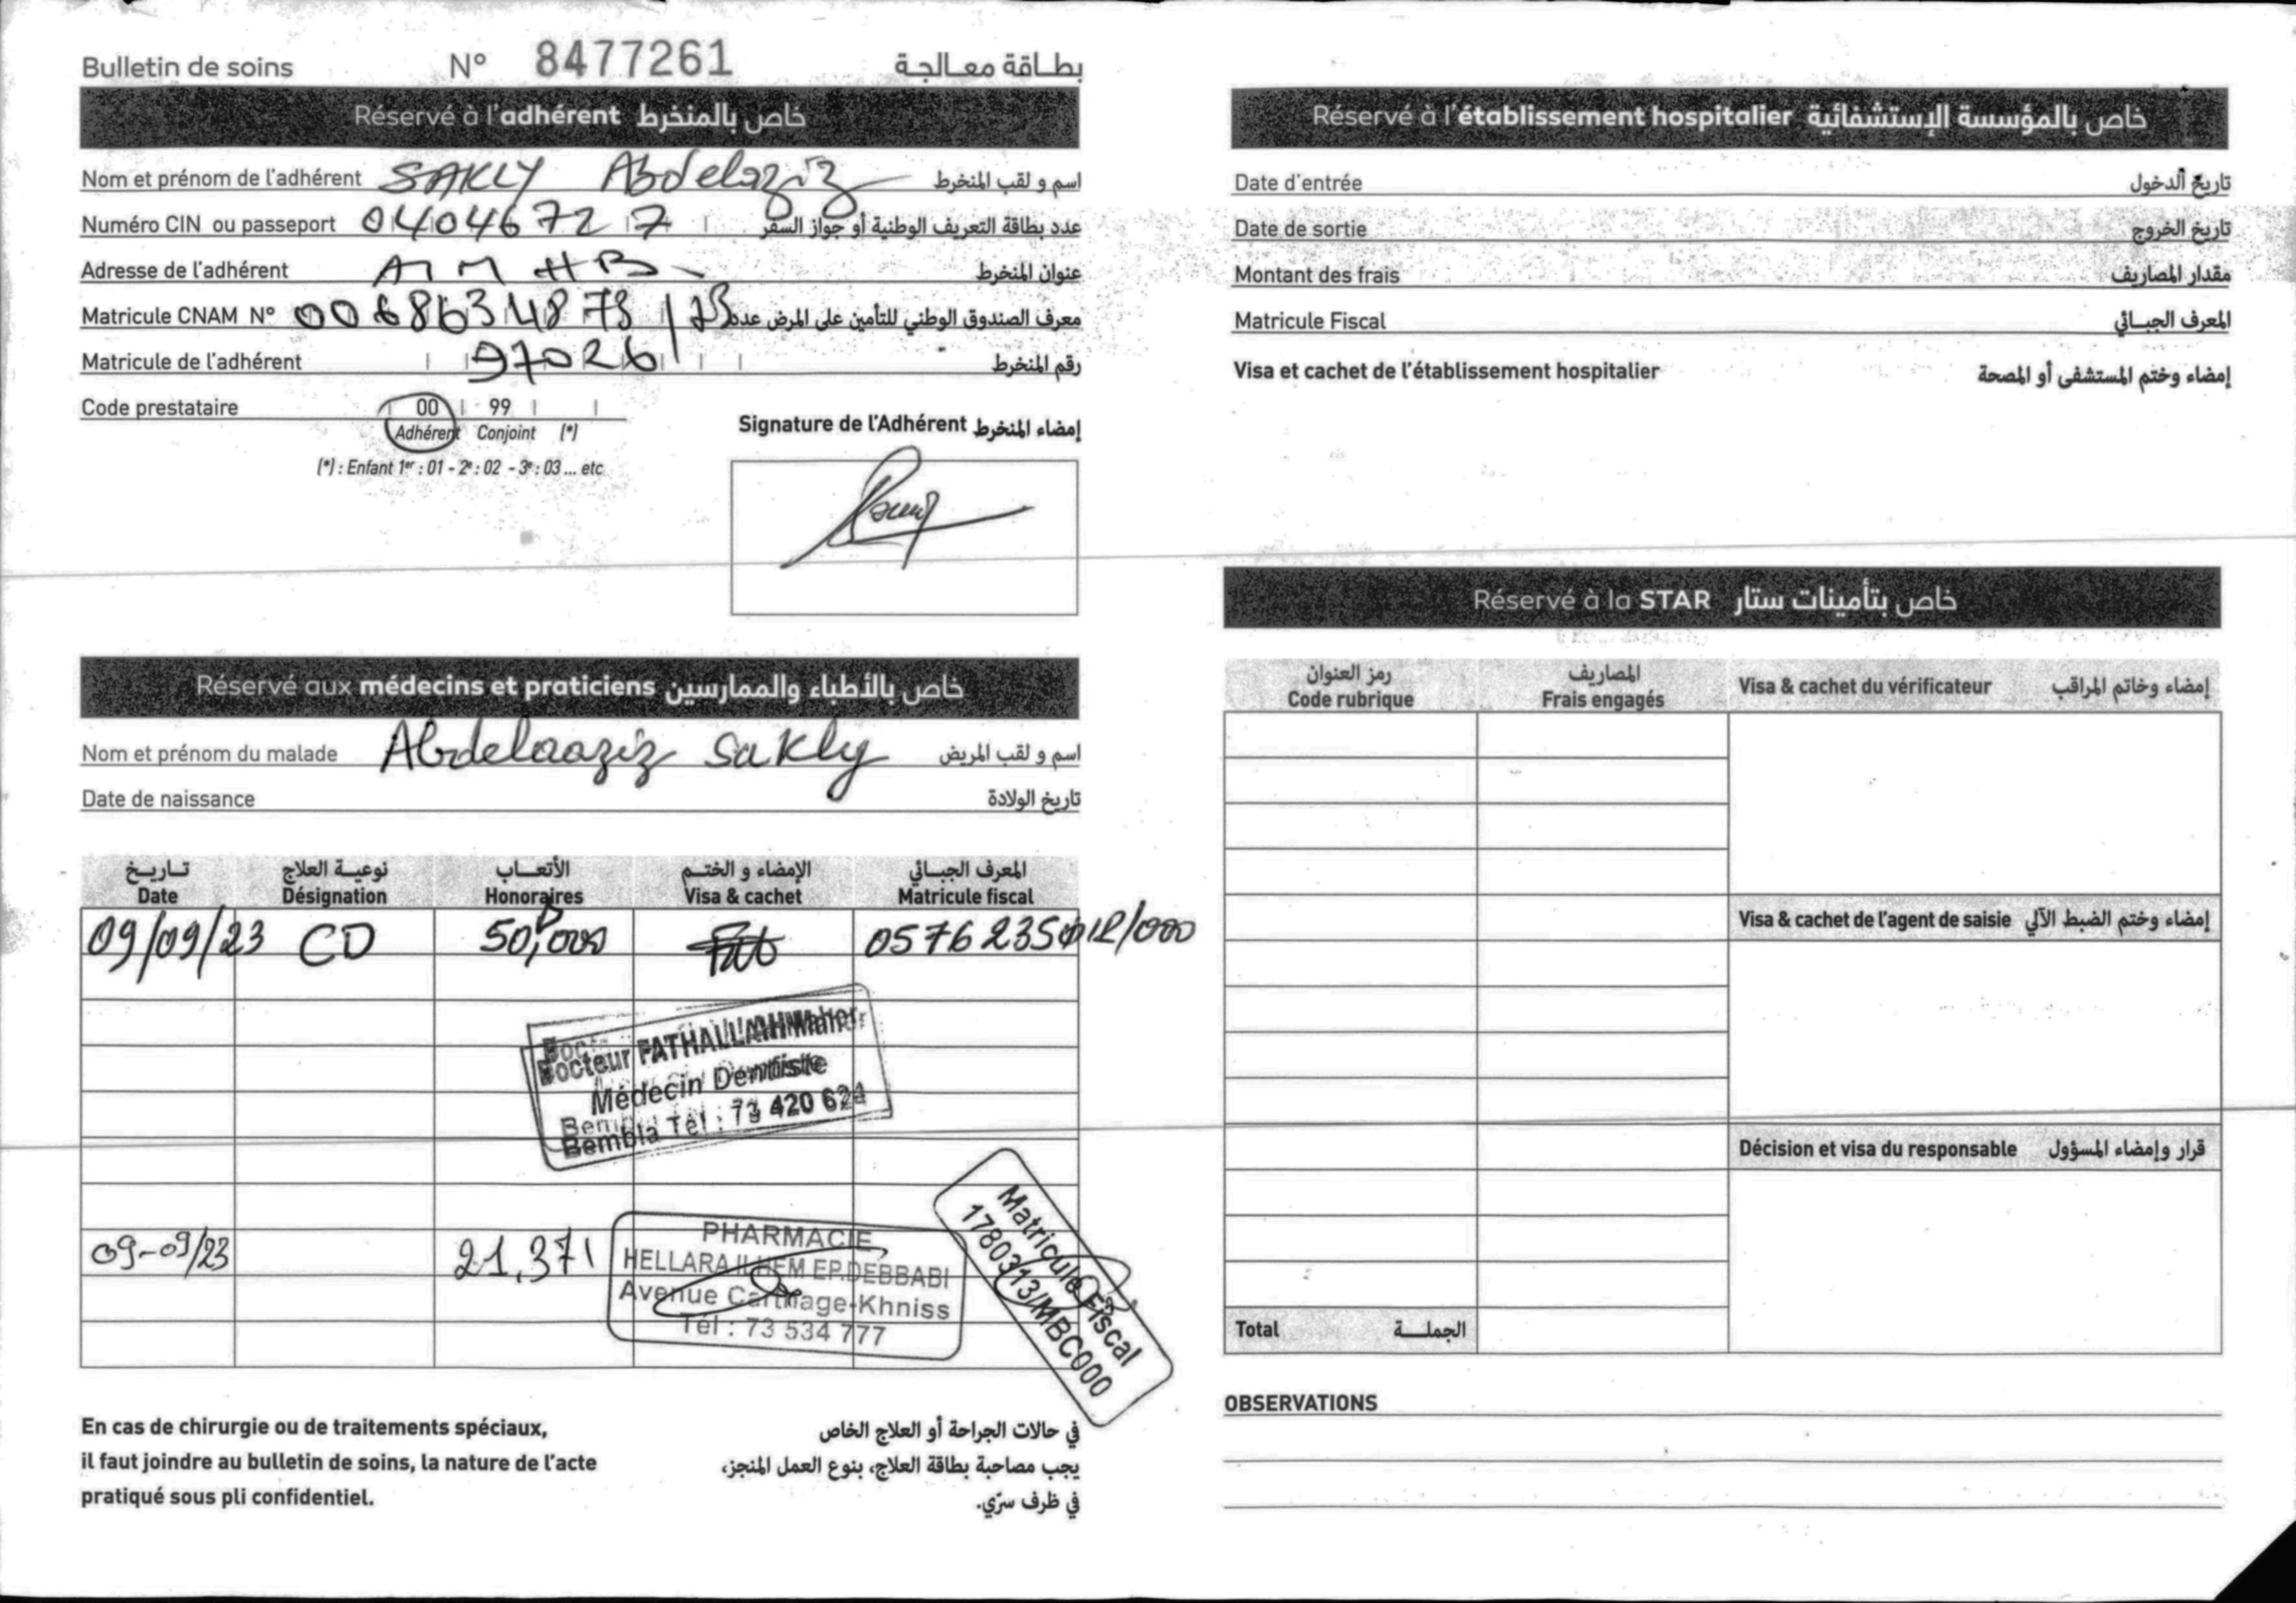 Bulletin de soins N° 8477261 بطاقة معالجة
Réservé à l'adhérent خاص بالمنخرط
Nom et prénom de l'adhérent SAKLY Abdelaziz اسم و لقب المنخرط
Numéro CIN ou passeport 04046727 عدد بطاقة التعريف الوطنية أو جواز السفر
Adresse de l'adhérent عنوان المنخرط
Matricule CNAM N° معرف الصندوق الوطني للتأمين على المرض عدد
Matricule de l'adhérent 97026 رقم المنخرط
Code prestataire 00 99
Adhérent Conjoint (*)
(*) : Enfant 1er : 01 - 2e : 02 - 3e : 03 ... etc
Signature de l'Adhérent إمضاء المنخرط
Réservé aux médecins et praticiens خاص بالأطباء والممارسين
Nom et prénom du malade Abdelaaziz Sakly اسم و لقب المريض
Date de naissance تاريخ الولادة
تاريخ نوعية العلاج الأتعاب الإمضاء و الختم المعرف الجبائي
Date Désignation Honoraires Visa & cachet Matricule fiscal
09/09/23 CD 50,000
Docteur FATHALLAH Maher
Médecin Dentiste
Bembla Tél : 73 420 624
09-09/23 21,371
PHARMACIE
HELLARA ILHEM EP.DEBBABI
Avenue Carthage-Khniss
Tél : 73 534 777
Matricule Fiscal
1780313/MBC000
En cas de chirurgie ou de traitements spéciaux,
il faut joindre au bulletin de soins, la nature de l'acte
pratiqué sous pli confidentiel.
في حالات الجراحة أو العلاج الخاص
يجب مصاحبة بطاقة العلاج، بنوع العمل المنجز،
في ظرف سرّي.
Réservé à l'établissement hospitalier خاص بالمؤسسة الإستشفائية
Date d'entrée تاريخ الدخول
Date de sortie تاريخ الخروج
Montant des frais مقدار المصاريف
Matricule Fiscal المعرف الجبائي
Visa et cachet de l'établissement hospitalier إمضاء وختم المستشفى أو المصحة
Réservé à la STAR خاص بتأمينات ستار
رمز العنوان المصاريف
Code rubrique Frais engagés
Visa & cachet du vérificateur إمضاء وخاتم المراقب
Visa & cachet de l'agent de saisie إمضاء وختم الضبط الآلي
Décision et visa du responsable قرار وإمضاء المسؤول
Total الجملة
OBSERVATIONS